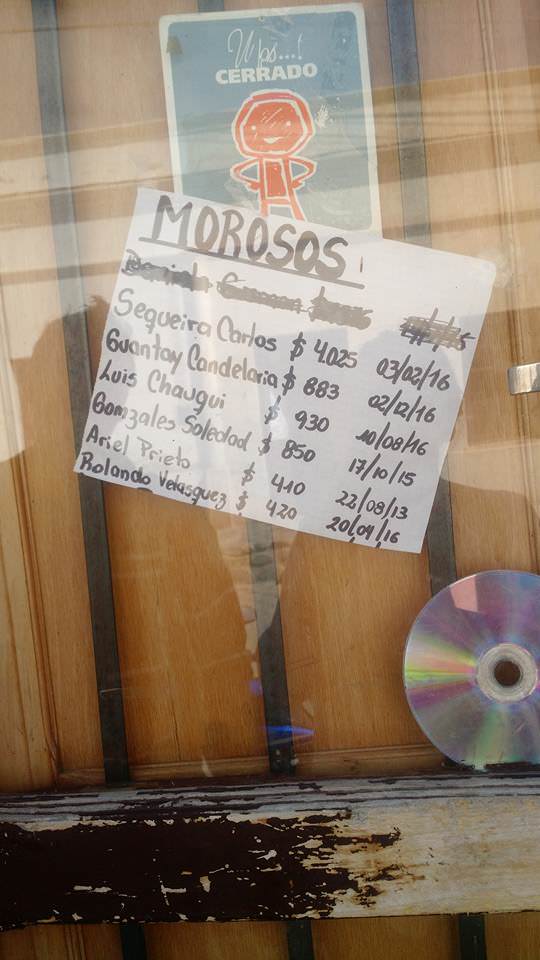 Ups...!
CERRADO
MOROSOS
Sequeira Carlos $ 4.025 03/02/16
Guantay Candelaria $ 883 02/12/16
Luis Chaugui $ 930 10/08/16
Gomzales Soledad $ 850 17/10/15
Ariel Prieto $ 410 22/08/13
Rolando Velasquez $ 420 20/04/16